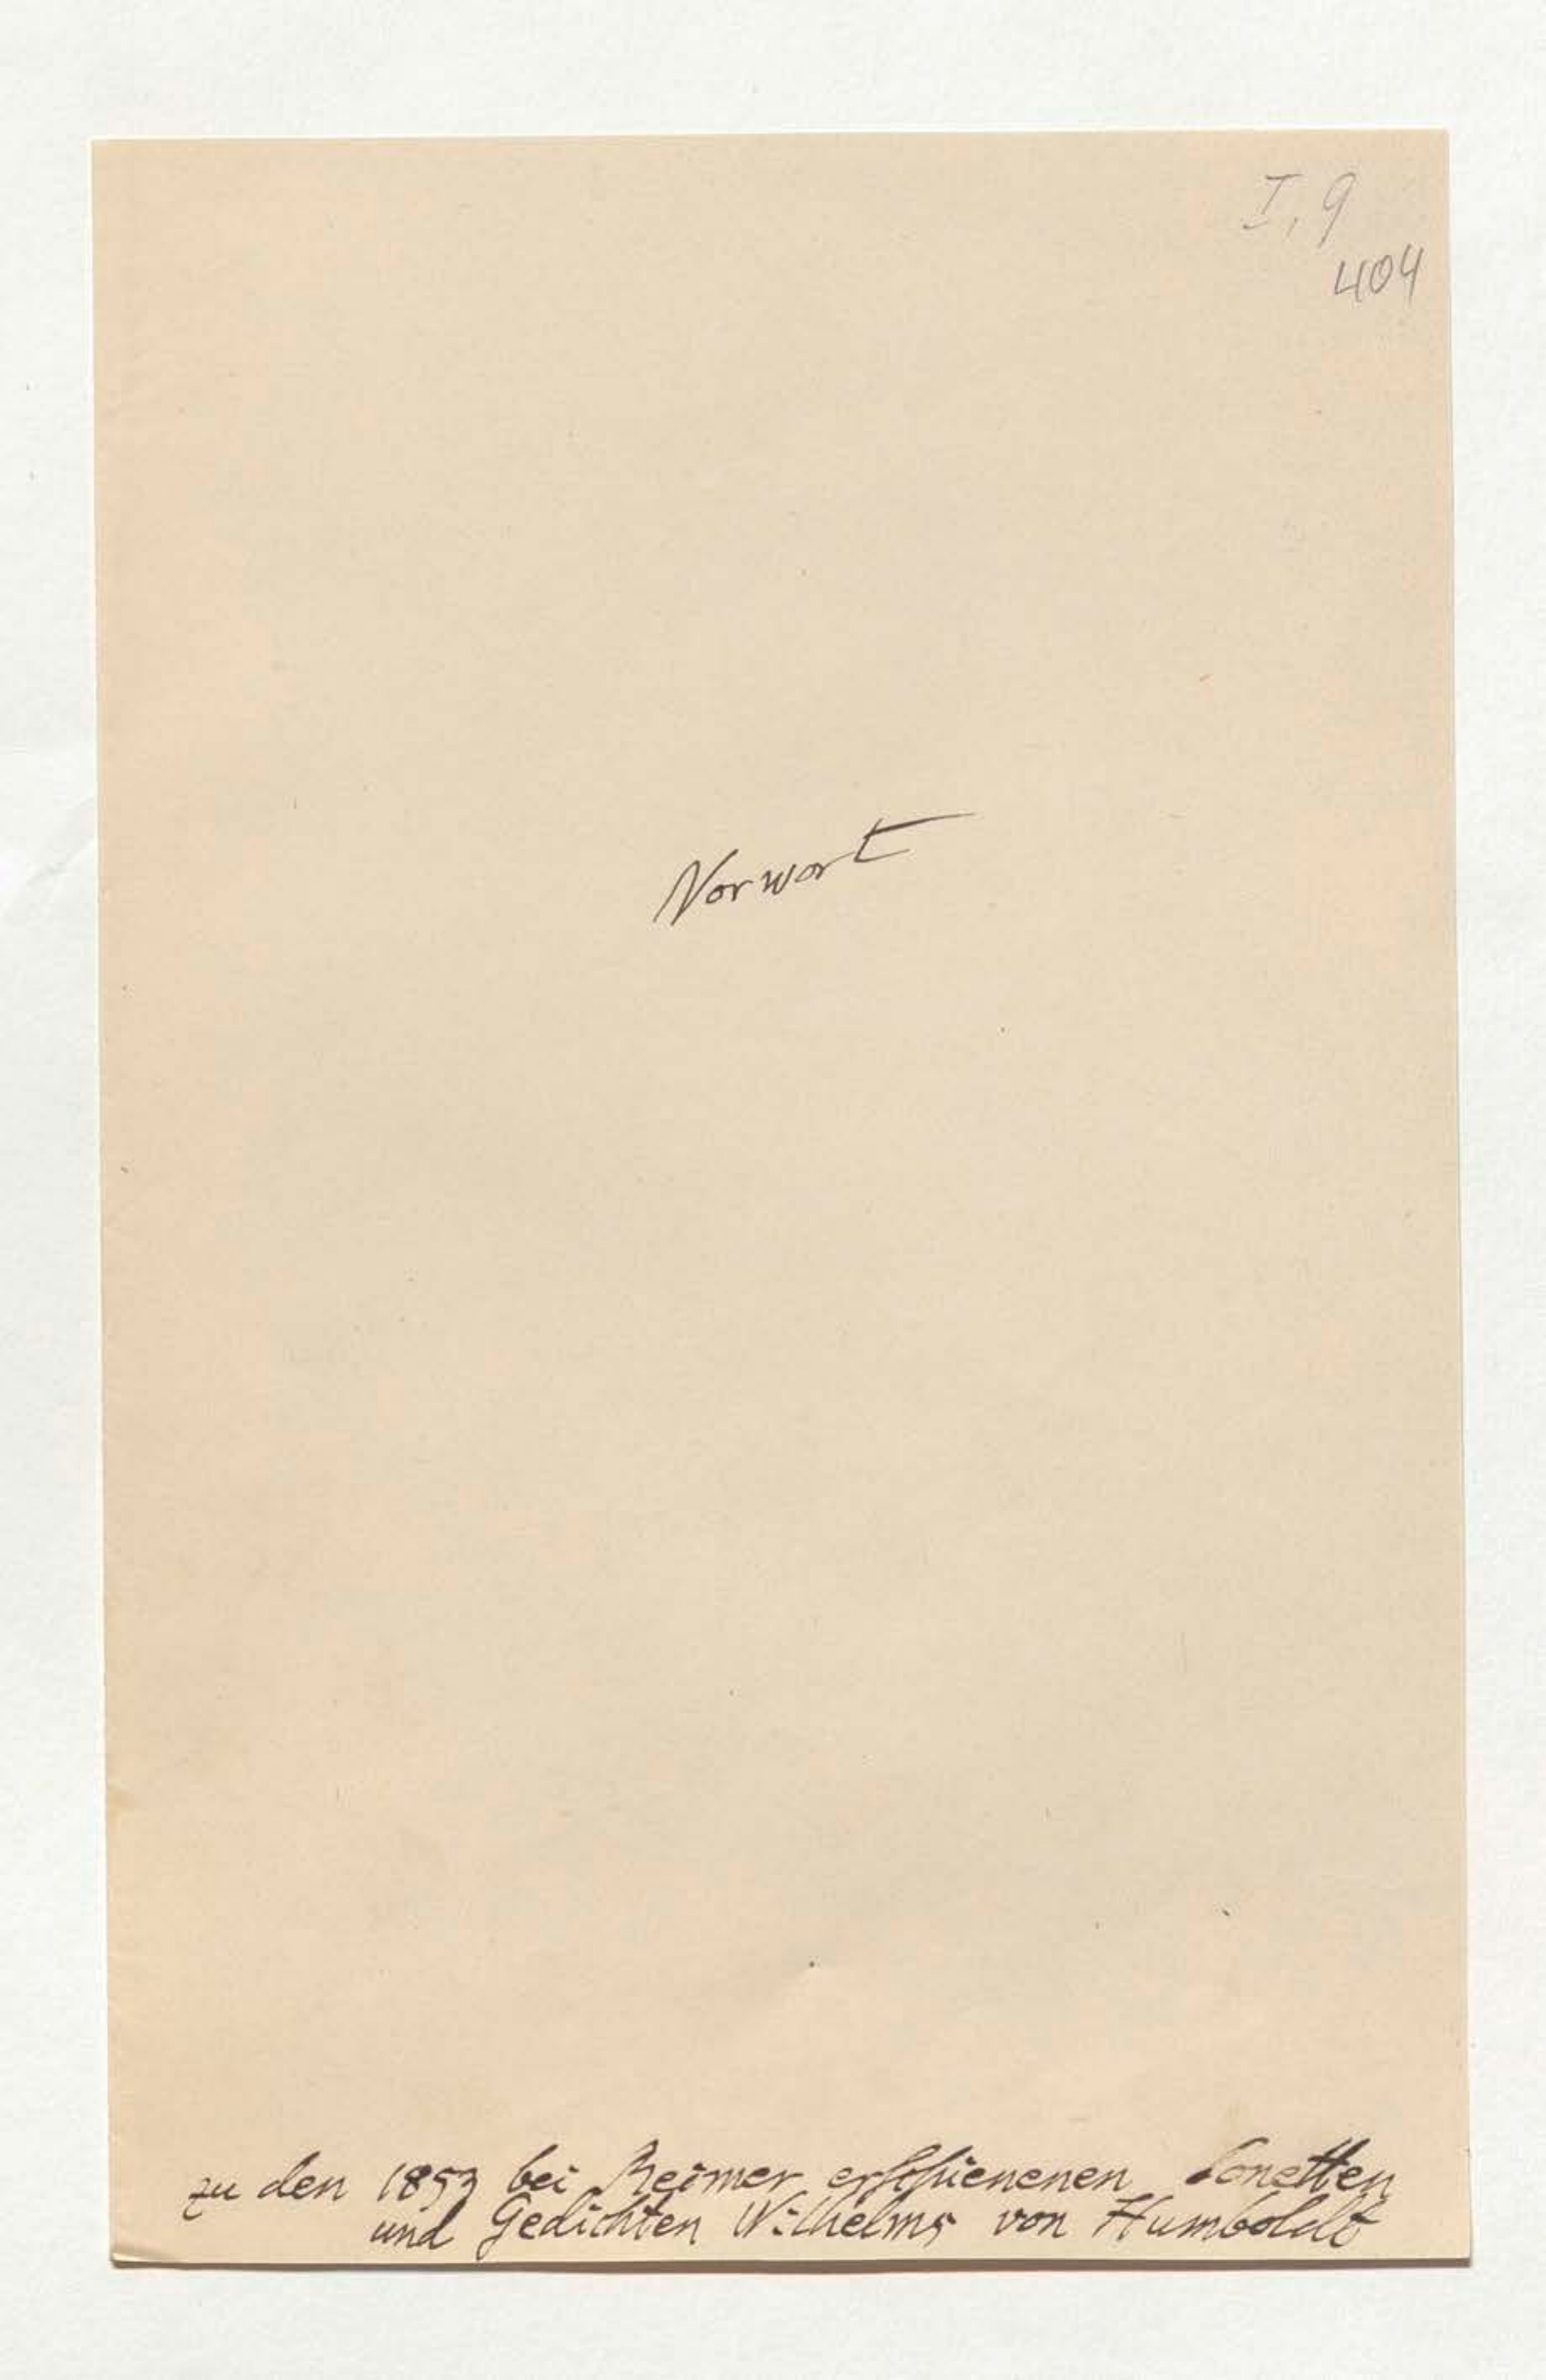 I, 9
404
Vorwort
zu den 1853 bei Reimer erschienenen Sonetten
und Gedichten Wilhelms von Humboldt